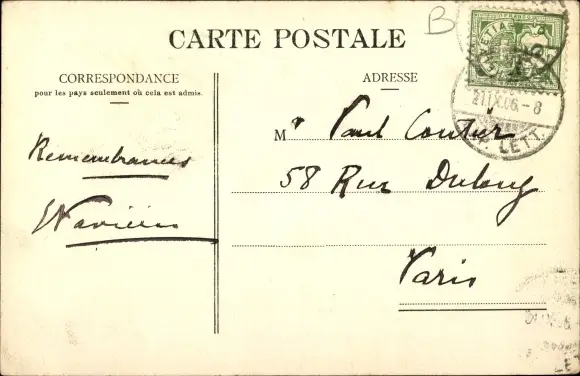 B
CARTE POSTALE
CORRESPONDANCE
pour les pays seulement où cela est admis.
ADRESSE
FRANCO
21.IX.06.-8
LETT.
Remembrances
Mr Paul Coutier
58 Rue Dulong
Paris